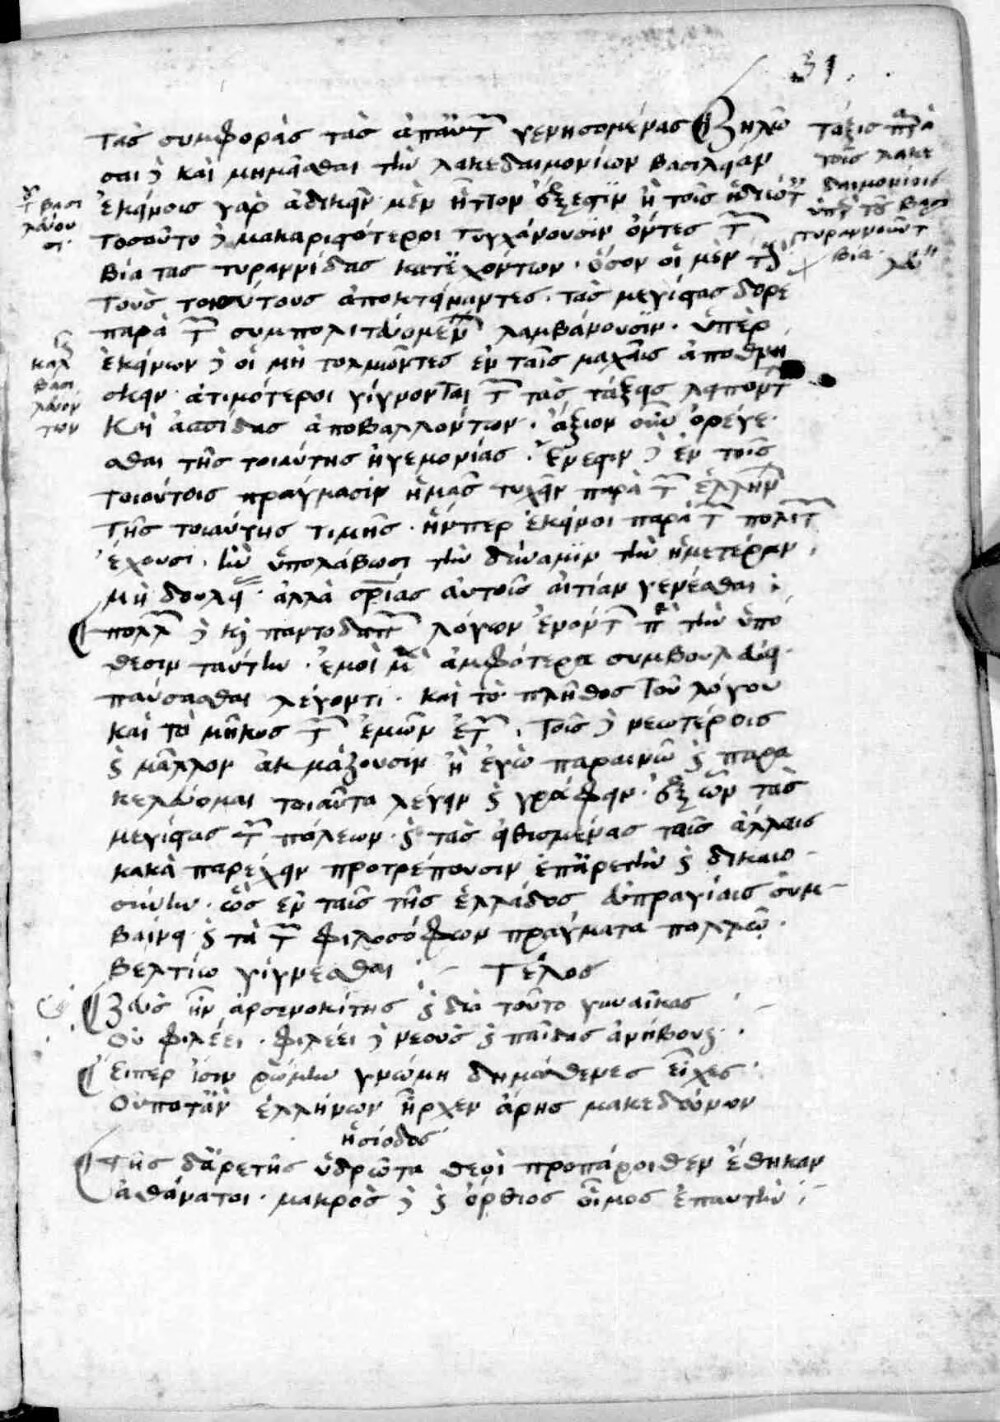 31.
τὰς συμφορὰς τὰς ἁπάντ γενησομένας ζηλῶ
σαι δ καὶ μιμήσασθαι τὴν λακεδαιμονίων βασιλείαν
ἐκείνοις γὰρ ἀδικεῖν μὲν ἧττον ἔξεστιν ἢ τοῖς ἰδιώτ
τοσούτω δ μακαριστότεροι τυγχάνουσιν ὄντες τ
βία τὰς τυραννίδας κατεχόντων. ὅσον οἱ μὲν
τοὺς τοιούτους ἀποκτείναντες. τὰς μεγίστας δορε
παρὰ τ συμπολιτευομέν λαμβάνουσιν. ὑπὲρ
ἐκείνων δ οἱ μὴ τολμῶντες ἐν ταῖς μάχαις ἀποθνή
σκειν ἀτιμότεροι γίγνονται τ τὰς τάξεις λειπόντ
καὶ ἀσπίδας ἀποβαλλόντων. ἄξιον οὖν ὀρέγε
σθαι τῆς τοιαύτης ἡγεμονίας. ἔνεστιν δ ἐν τοῖς
τοιούτοις πράγμασιν ἡμᾶς τυχεῖν παρὰ τ ἑλλήν
τῆς τοιαύτης τιμῆς. ἥνπερ ἐκεῖνοι παρὰ τ πολιτ
ἔχουσι. ἢν ὑπολάβωσι τὴν δύναμιν τὴν ἡμετέραν
μὴ δουλεί. ἀλλὰ σρίας αὐτοῖς αἰτίαν γενέσθαι
πολλ δ κ παντοδαπ λόγων ἐνόντ π τὴν ὑπό
θεσιν ταύτην. ἐμοὶ μ ἀμφότερα συμβουλεύει
παύσασθαι λέγοντι. καὶ τὸ πλῆθος τοῦ λόγου
καὶ τὸ μῆκος τ ἐμῶν ἐτ. τοῖς δ νεωτέροις
κ μᾶλλον ἀκμάζουσιν ἢ ἐγὼ παραινῶ κ παρα
κελεύομαι τοιαῦτα λέγειν κ γράφειν. ἐξ ὧν τὰς
μεγίστας τ πόλεων. κ τὰς εἰθισμένας ταῖς ἄλλαις
κακὰ παρέχειν προτρέπουσιν ἐπ' ἀρετὴν κ δικαιο
σύνην. ὡς ἐν ταῖς τῆς ἑλλάδος εὐπραγίαις συμ-
βαίνει κ τὰ τ φιλοσόφων πράγματα πολλῶ
βελτίω γίγνεσθαι :- Τέλος
Ζεὺς ἦν ἀρσενοκίτης κ διὰ τοῦτο γυναῖκας
Οὐ φιλέει. φιλέει δ νέους κ παῖδας ἀνήβους
Εἴπερ ἴσην ῥώμην γνώμη δημόσθενες εἶχες
Οὔποτ' ἂν ἑλλήνων ἦρχεν ἄρης μακεδόνων
ἡσίοδος
Τῆς δ' ἀρετῆς ἱδρῶτα θεοὶ προπάροιθεν ἔθηκαν
ἀθάνατοι. μακρὸς δ κ ὄρθιος οἶμος ἐπ' αὐτὴν :-
τάξις παρὰ
τοῖς λακε
δαιμονίοις
ὑπὲρ τοῦ βασι
τυραννοῦντ
βία
τ βασι
λεύου
σι
κατ
βασι
λευόν
των